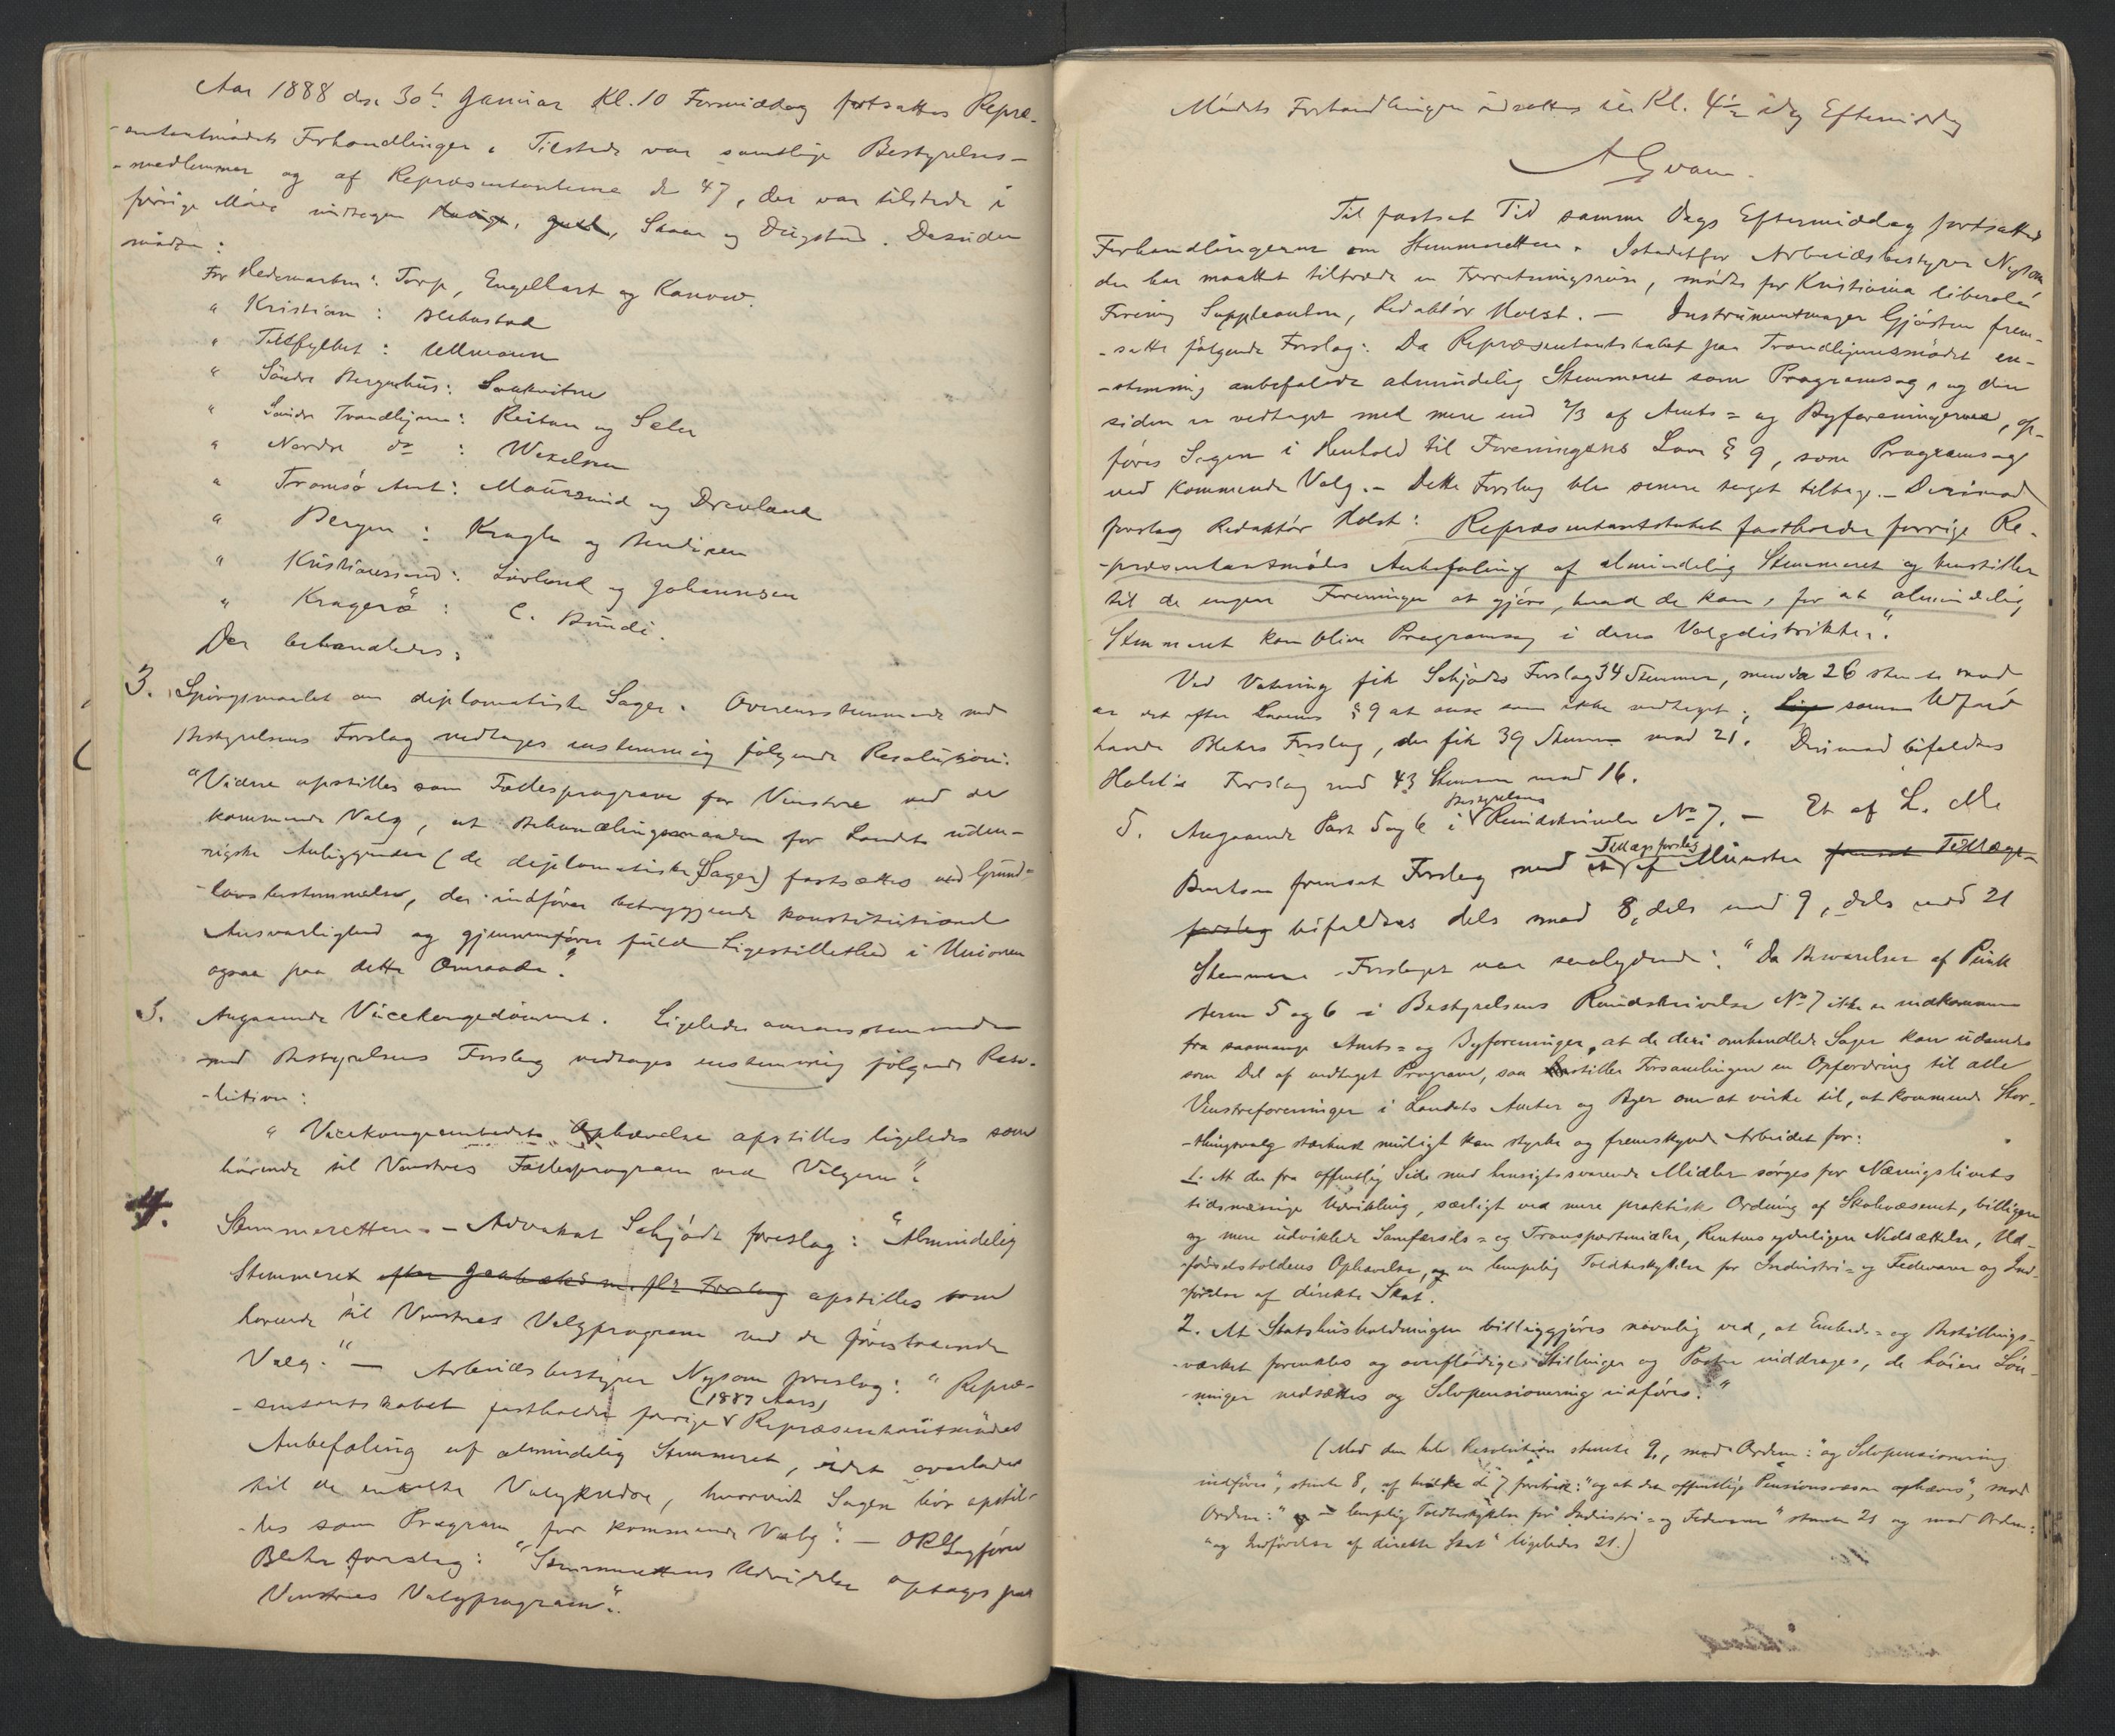 Aar 1888 den 30te Januar Kl. 10 Formiddag fortsattes Repræ-
-sentantmødets Forhandlinger. Tilstede var samtlige Bestyrelses-
-medlemmer og af Repræsentanterne de 47, der var tilstede i
forrige Møde undtagen Skaar og Dugstad. Desuden
mødte:
For Hedemarken: Torp, Engelhart og Kanow.
" Kristian: Blekastad
" Tillfylket: Ullmann
" Søndre Bergenhus:
" Søndre Trondhjem: Reitan og Sæler
" Nordre do: Wexelsen
" Tromsø Amt: Moursund og Drevland
" Bergen: Krogh og Bendixen
" Kristianssand: Løvland og Johannesen
" Kragerø: C. Bundi.
Der behandledes:
3. Spørgsmaalet om diplomatiske Sager. Overensstemmende med
Bestyrelsens Forslag vedtoges enstemmig følgende Resolution:
"Videre opstilles som Fællesprogram for Venstre ved de
kommende Valg, at Behandlingsmaaden for Landets uden-
rigske Anliggender (de diplomatiske Sager) fastsættes ved Grund=
-lovsbestemmelse, der indfører betryggende konstitutionel
Ansvarlighed og gjennemfører fuld Ligestillethed i Unionen
ogsaa paa dette Omraade."
3. Angaaende Vicekongedømmet. Ligeledes overensstemmende
med Bestyrelsens Forslag vedtoges enstemmig følgende Reso-
-lution:
"Vicekongeembedets Ophævelse opstilles ligeledes som
hørende til Venstres Fællesprogram ved Valgene".
4. Stemmeretten. - Advokat Schjødt foreslog: "Almindelig
Stemmeret efter Jaabæks m. fl's Forslag opstilles som
hørende til Venstres Valgprogram ved de forestaaende
Valg." - Arbeidsbestyrer Nysom foreslog: "Repræ-
(1887 Aars)
-sentantskabet fastholder forrige Repræsentantmødes
Anbefaling af almindelig Stemmeret, idet overlades
til de enkelte Valgkredse, hvorvidt Sagen bør opstil-
-les som Program for kommende Valg". - ORSagfører
Blehr foreslog: "Stemmerettens Udvidelse optages paa
Venstres Valgprogram".
Mødets Forhandlinger udsattes til Kl. 4½ idag Eftermiddag
A Qvam.
Til fastsat Tid samme Dags Eftermiddag fortsattes
Forhandlingerne om Stemmeretten. Istedetfor Arbeidsbestyrer Nysom
der har maattet tiltræde en Forretningsreise, mødte for Kristiania liberale
Forening Suppleanten, Redaktør Holst. - Instrumentmager Gjøsten frem-
-satte følgende Forslag: Da Repræsentantskabet paa Trondhjemsmødet en-
-stemmig anbefalede almindelig Stemmeret som Programsag, og den
siden er vedtaget med mere end 2/3 af Amts= og Byforeningerne, op-
føres Sagen i Henhold til Foreningens Love § 9, som Programsag
ved kommende Valg. - Dette Forslag blev senere taget tilbage. - Derimod
foreslog Redaktør Holst: Repræsentantskabet fastholder forrige Re-
-præsentantmødes Anbefaling af almindelig Stemmeret og henstiller
til de engere Foreninger at gjøre, hvad de kan, for at "almindelig
Stemmeret kan blive Programsag i deres Valgdistrikter."
Ved Votering fik Schjødts Forslag 34 Stemmer, men da 26 stemte mod
er det efter Lovens § 9 at anse som ikke vedtaget; lige som
Blehrs Forslag, der fik 39 Stemmer mod 21. Derimod bifaldtes
Holst's Forslag med 43 Stemmer mod 16.
Bestyrelsens
5. Angaaende Post 5 og 6 i Rundskrivelse No 7. - Et af L. M.
Tillægsforslag
Bentsen fremsat Forslag med et af Münster fremsat Tillægs-
forslag bifaldtes dels mod 8, dels mod 9, dels mod 21
Stemmer. Forslaget var saalydende: "Da Besvarelser af Punk
terne 5 og 6 i Bestyrelsens Rundskrivelse No 7 ikke er indkommen
fra saamange Amts= og Byforeninger, at de deri omhandlede Sager kan udsendes
som Del af vedtaget Program, saa stiller Forsamlingen en Opfordring til alle
Venstreforeninger i Landets Amter og Byer om at virke til, at kommende Stor-
-thingsvalg stærkest muligt kan styrke og fremskynde Arbeidet for:
1. At der fra offentlig Side med hensigtssvarende Midler sørges for Næringslivets
tidsmæssige Udvikling, særligt ved mere praktisk Ordning af Skolevæsenet, billigere
og mere udviklede Samfærdsels= og Transportmidler, Rentens yderligere Nedsættelse, Ud-
-førselstoldens Ophævelse, og en lempelig Toldbeskyttelse for Industri= og Fedevarer og Ind-
-førelse af direkte Skat.
2. At Statshusholdningen billiggjøres navnlig ved, at Embeds= og Bestillings-
-værket forenkles og overflødige Stillinger og Poster inddrages, de høiere Løn-
-ninger nedsættes og Selvpensionering indføres."
(Mod den hele Resolution stemte 9, mod Ordene: "og Selvpensionering
indføres", stemte 8, af hvilke de 7 foretrak: "og at det offentlige Pensionsvæsen ophæves", mod
Ordene: "og en lempelig Toldbeskyttelse for Industri= og Fedevarer" stemte 21 og mod Ordene:
"og Indførelse af direkte Skat" ligeledes 21.)